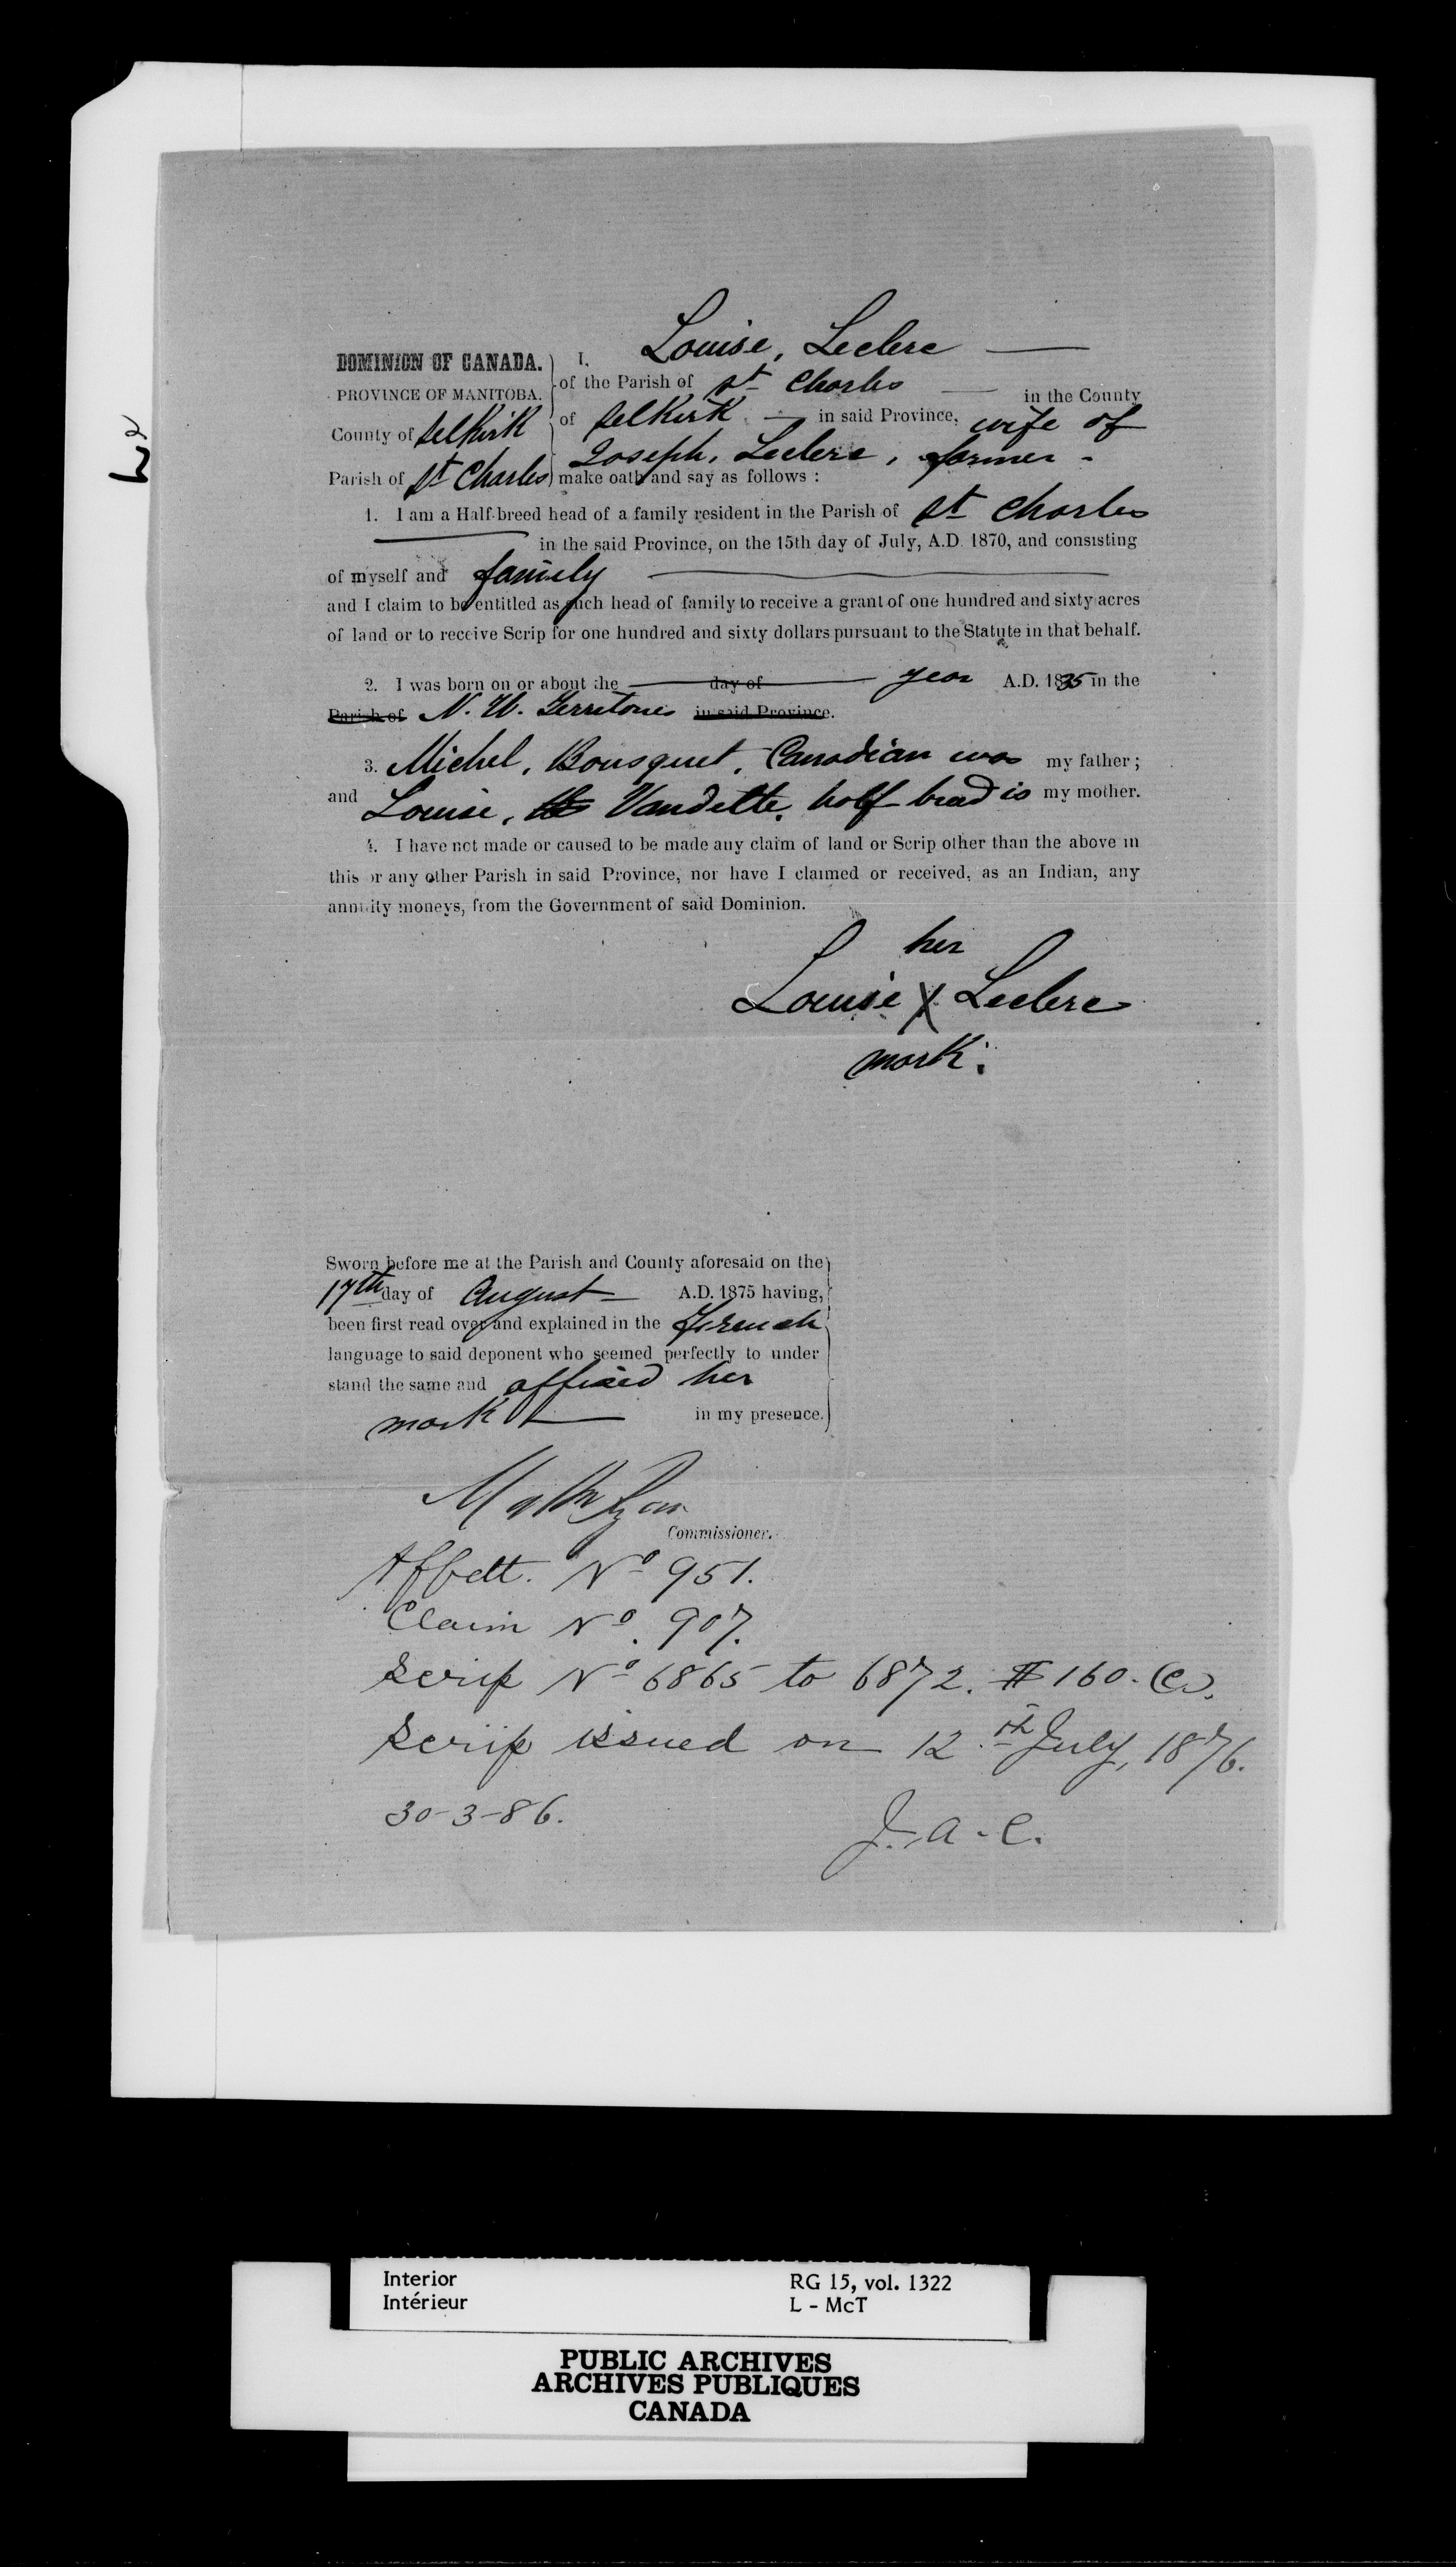 Louise, Leclerc
DOMINION OF CANADA. I,
PROVINCE OF MANITOBA. of the Parish of St Charles in the County
County of Selkirk of Selkirk in said Province, wife of
Joseph, Leclerc, farmer -
Parish of St Charles make oath and say as follows :
1. I am a Half-breed head of a family resident in the Parish of St Charles
in the said Province, on the 15th day of July, A.D. 1870, and consisting
of myself and family
and I claim to be entitled as such head of family to receive a grant of one hundred and sixty acres
of land or to receive Scrip for one hundred and sixty dollars pursuant to the Statute in that behalf.
2. I was born on or about the day of year A.D. 1835 in the
Parish of N. W. Territories in said Province.
3. Michel, Bousquet, Canadian was my father;
and Louise, Vandette, half-breed is my mother.
4. I have not made or caused to be made any claim of land or Scrip other than the above in
this or any other Parish in said Province, nor have I claimed or received, as an Indian, any
annuity moneys, from the Government of said Dominion.
her
Louise X Leclerc
mark.
Sworn before me at the Parish and County aforesaid on the
17th day of August A.D. 1875 having,
been first read over and explained in the French
language to said deponent who seemed perfectly to under
stand the same and affixed her
mark in my presence.
Commissioner.
Affdtt. No 951.
Claim No. 907.
Scrip No 6865 to 6872. $160.
Scrip issued on 12th July, 1876.
30-3-86.
J.A.C.
Interior RG 15, vol. 1322
Intérieur L - McT
PUBLIC ARCHIVES
ARCHIVES PUBLIQUES
CANADA